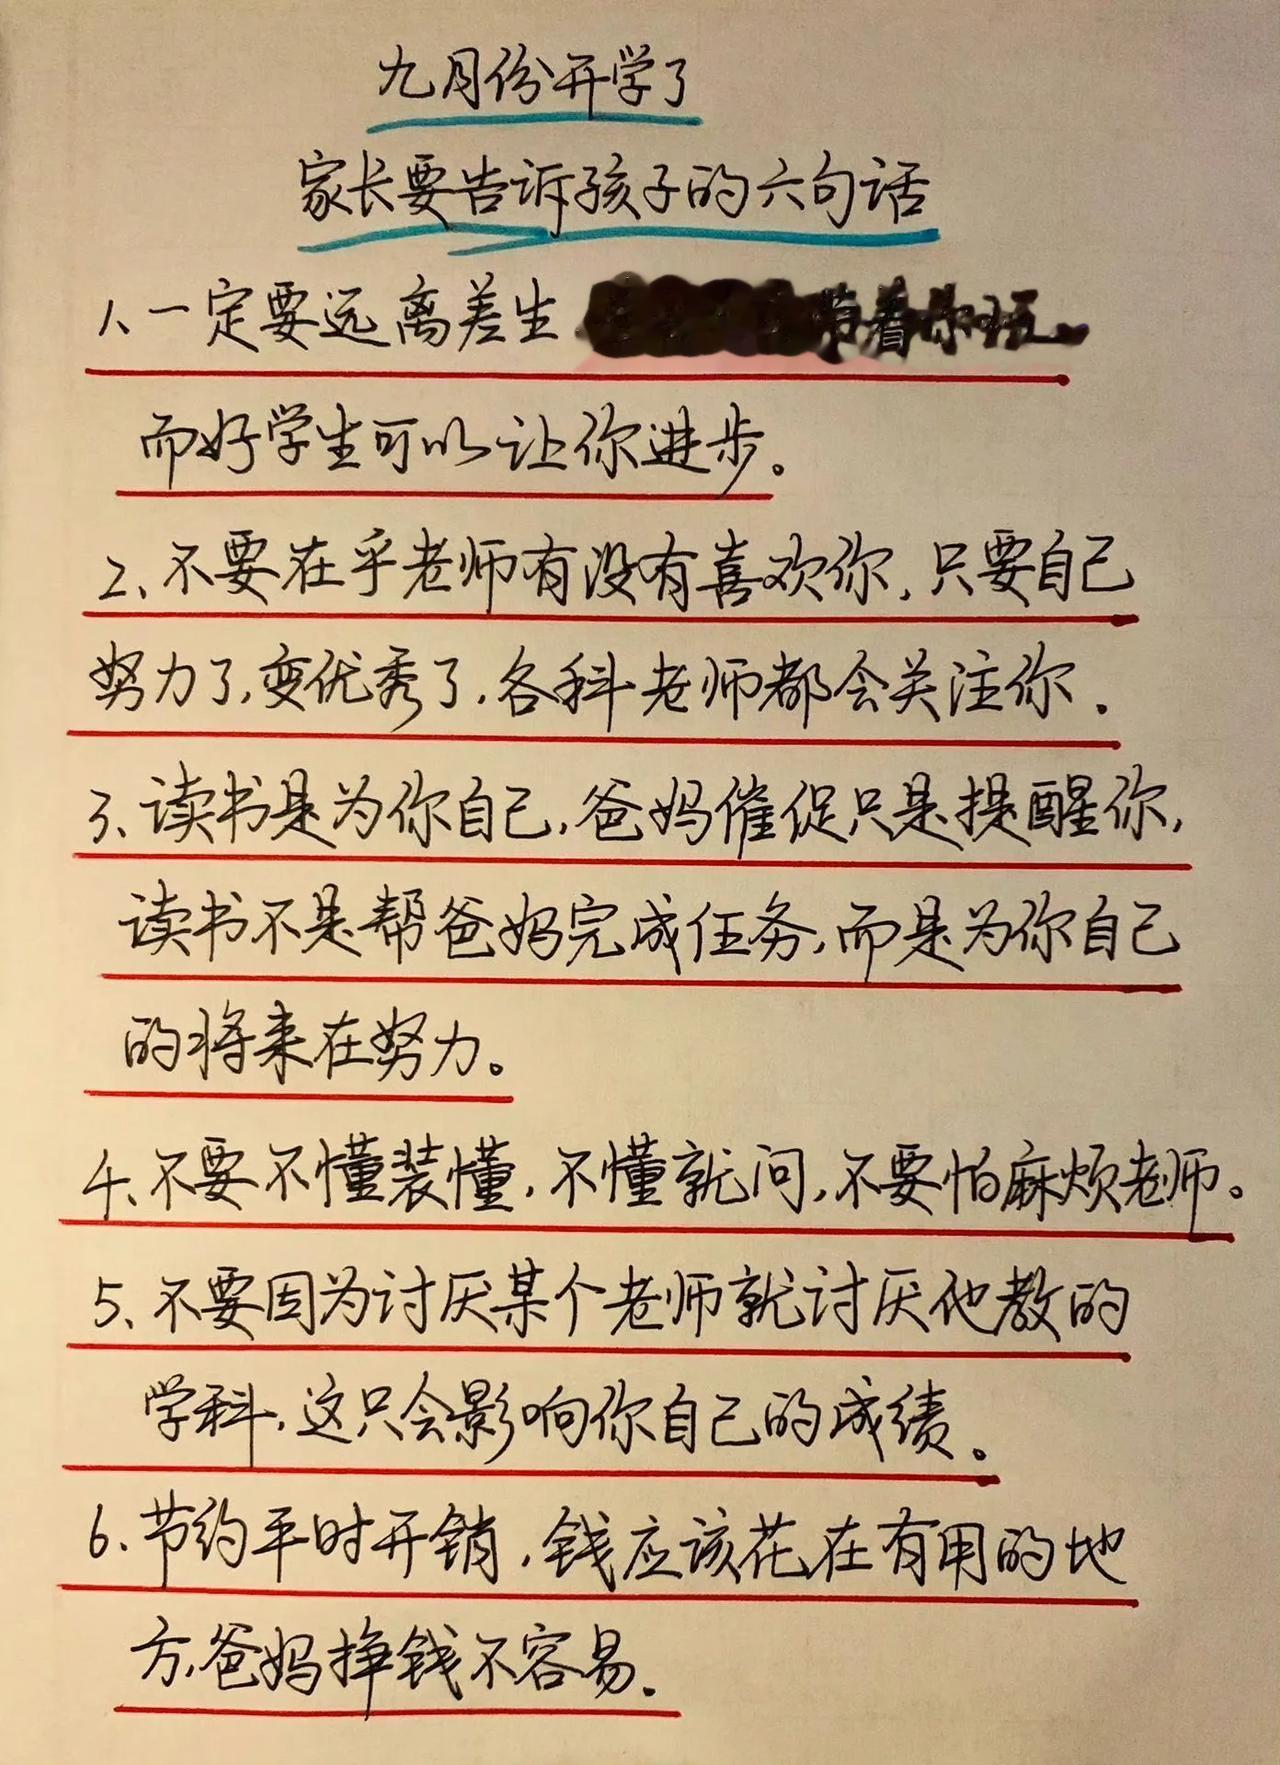 九月份开学了
家长要告诉孩子的六句话
1、一定要远离差生 带着你玩、
而好学生可以让你进步。
2、不要在乎老师有没有喜欢你,只要自己
努力了,变优秀了,各科老师都会关注你.
3、读书是为你自己,爸妈催促只是提醒你,
读书不是帮爸妈完成任务,而是为你自己
的将来在努力。
4、不要不懂装懂,不懂就问,不要怕麻烦老师。
5、不要因为讨厌某个老师就讨厌他教的
学科,这只会影响你自己的成绩。
6、节约平时开销,钱应该花在有用的地
方,爸妈挣钱不容易.